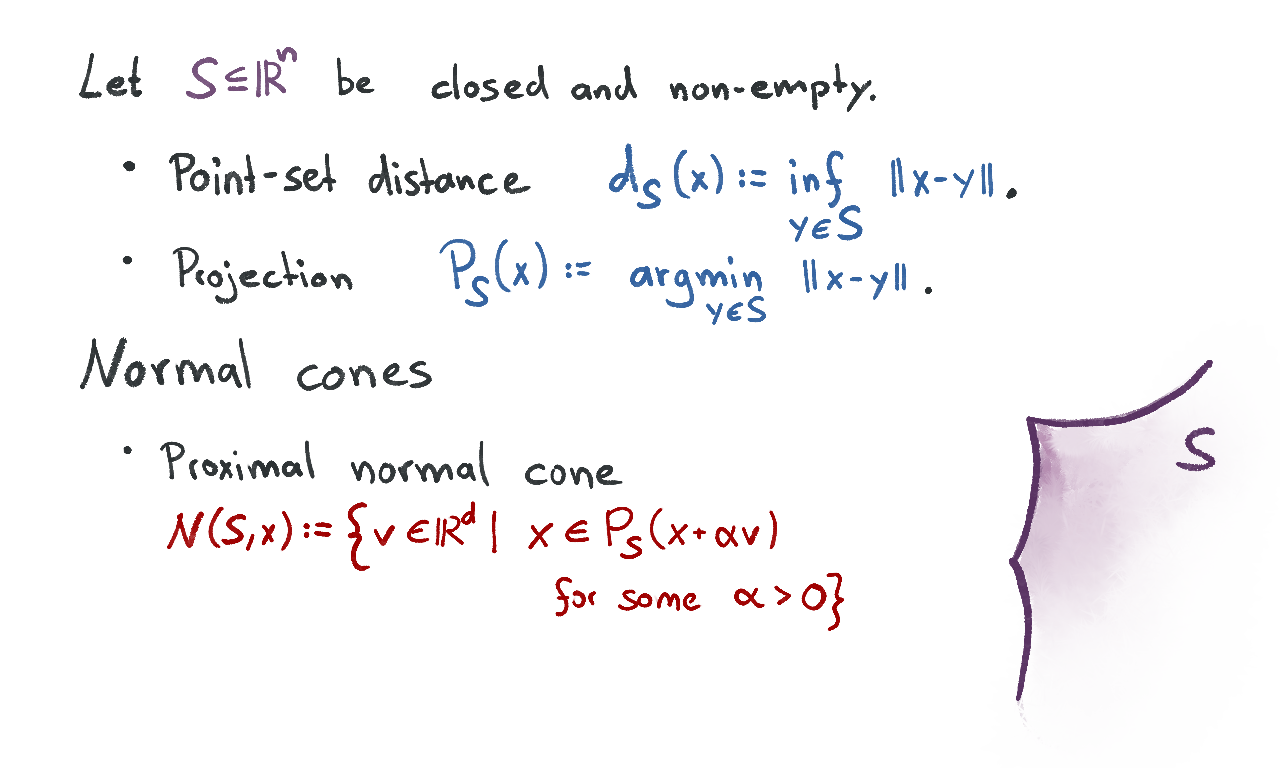 Let S⊆ℝⁿ be closed and non-empty.
• Point-set distance d_S(x) := inf_{y∈S} ||x-y||.
• Projection P_S(x) := argmin_{y∈S} ||x-y||.
Normal cones
• Proximal normal cone
N(S,x) := {v∈ℝ^d | x ∈ P_S(x+αv)
for some α>0}
S